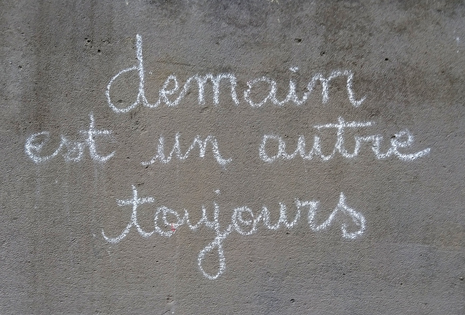 demain
est un autre
toujours